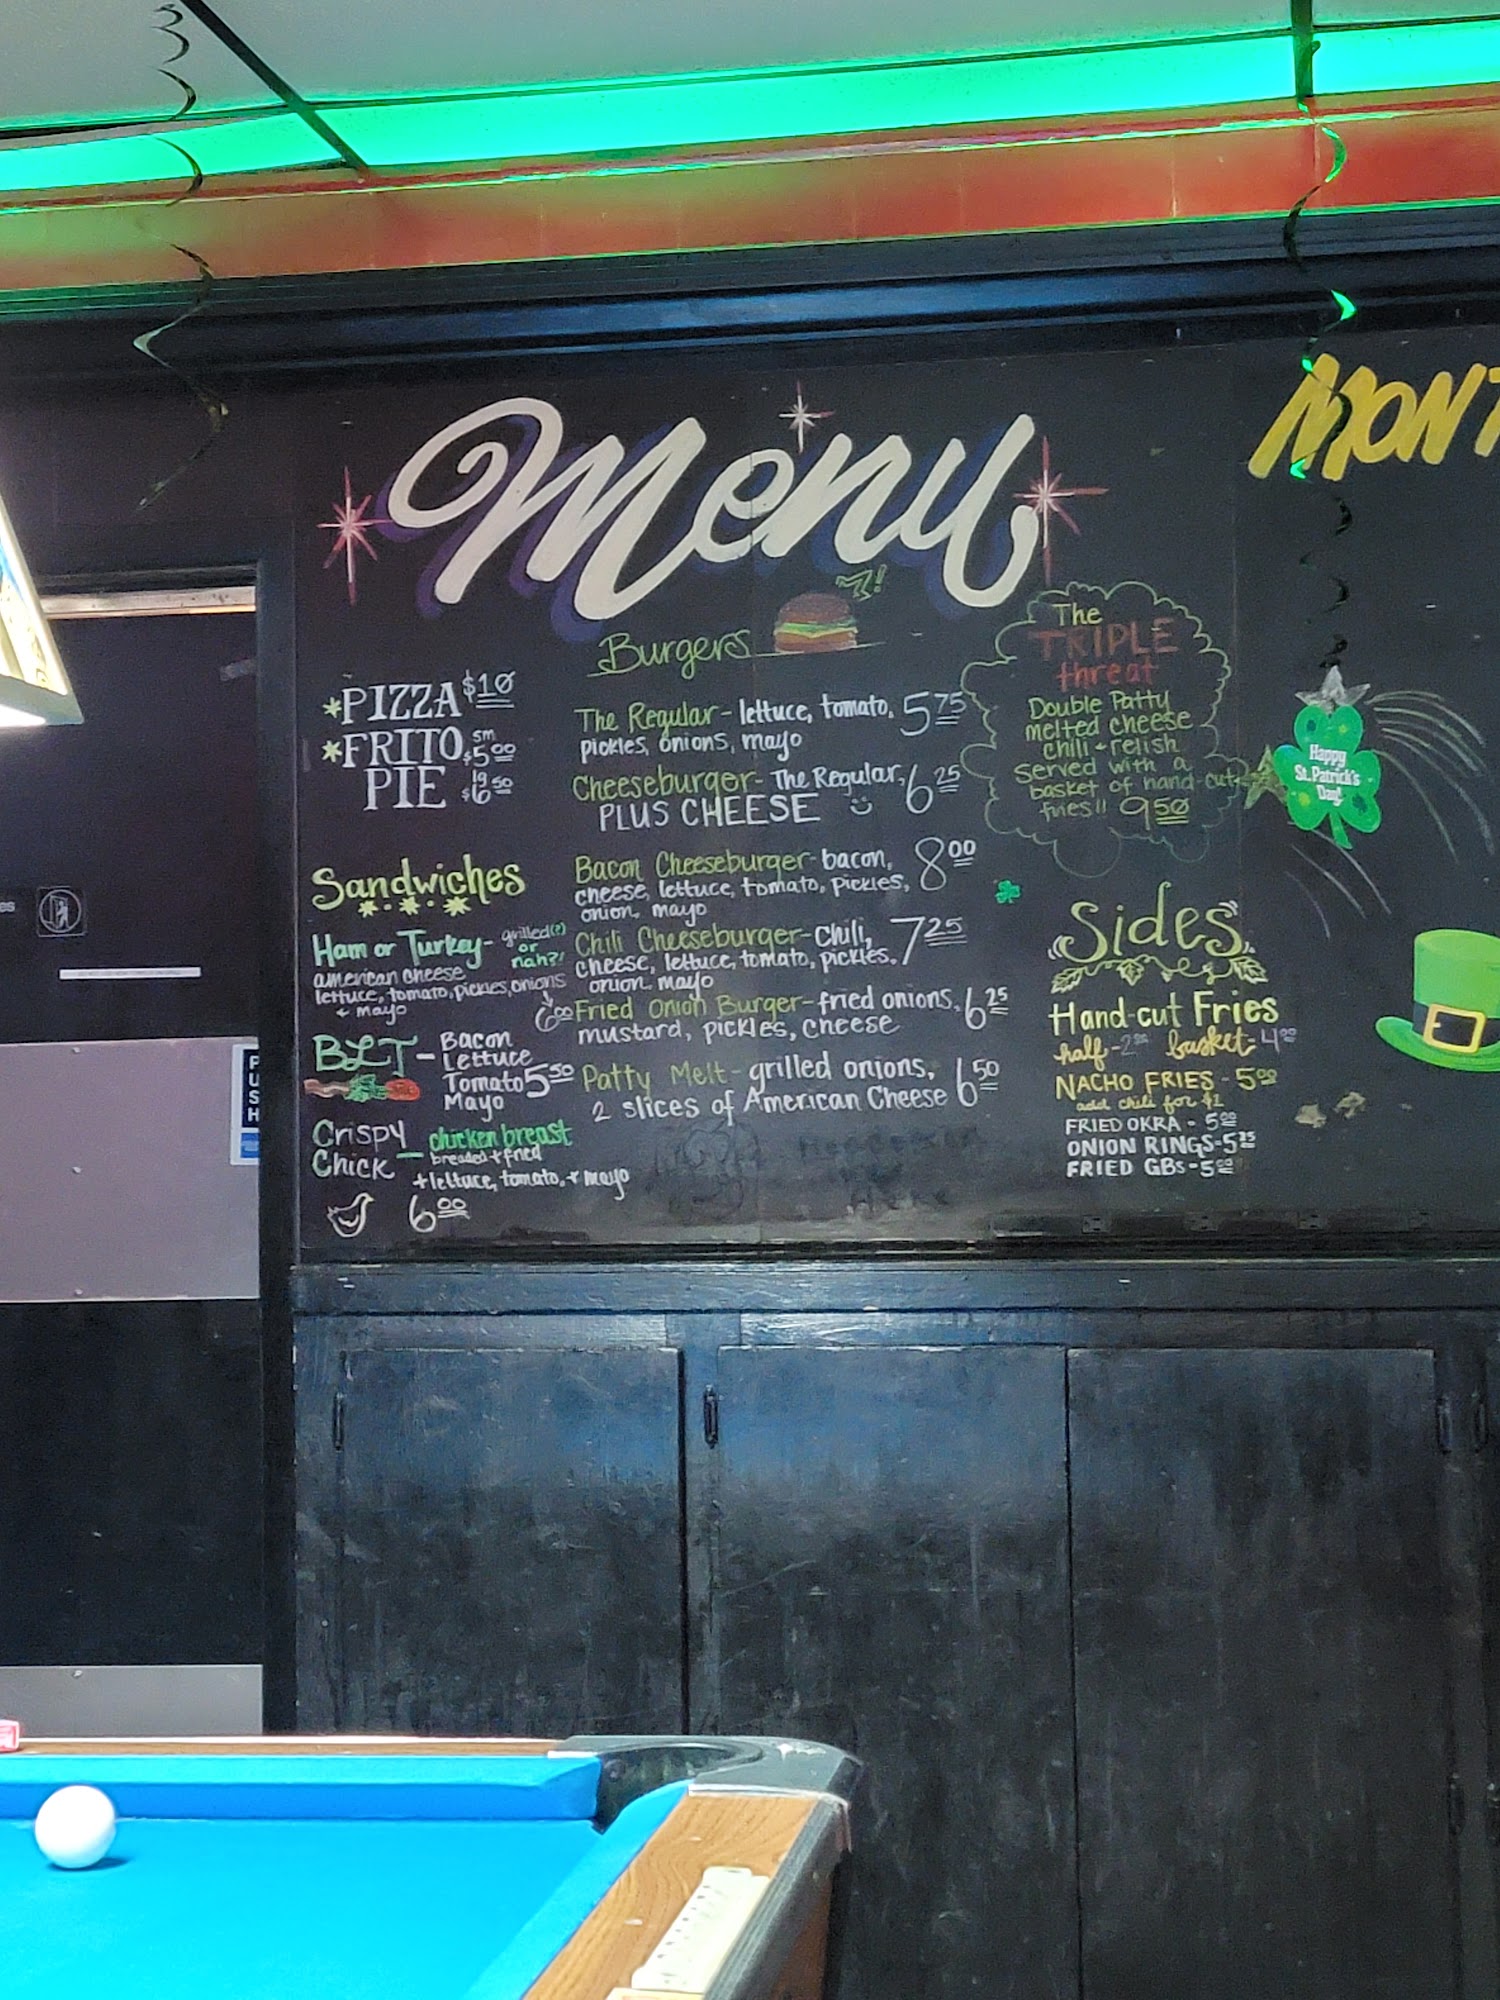 Menu
MONT
Burgers
*PIZZA $10
*FRITO sm $5.00
PIE lg $6.50
Sandwiches
Ham or Turkey- grilled(?)
or
nah?!
american cheese,
lettuce, tomato, pickles, onions
+ mayo
6.00
BLT - Bacon
Lettuce
Tomato 5.50
Mayo
Crispy - chicken breast
Chick breaded + fried
+ lettuce, tomato, + mayo
6.00
The Regular - lettuce, tomato, 5.75
pickles, onions, mayo
Cheeseburger - The Regular, 6.25
PLUS CHEESE
Bacon Cheeseburger - bacon, 8.00
cheese, lettuce, tomato, pickles,
onion, mayo
Chili Cheeseburger - chili, 7.25
cheese, lettuce, tomato, pickles,
onion, mayo
Fried Onion Burger - fried onions, 6.25
mustard, pickles, cheese
Patty Melt - grilled onions, 6.50
2 slices of American Cheese
The
TRIPLE
threat
Double Patty
melted cheese
chili + relish
served with a
basket of hand-cut
fries!! 9.50
Sides
Hand-cut Fries
half - basket - 4.00
NACHO FRIES - 5.00
add chili for $1
FRIED OKRA - 5.00
ONION RINGS - 5.25
FRIED GBs - 5.00
Happy
St. Patrick's
Day!
P
U
S
H